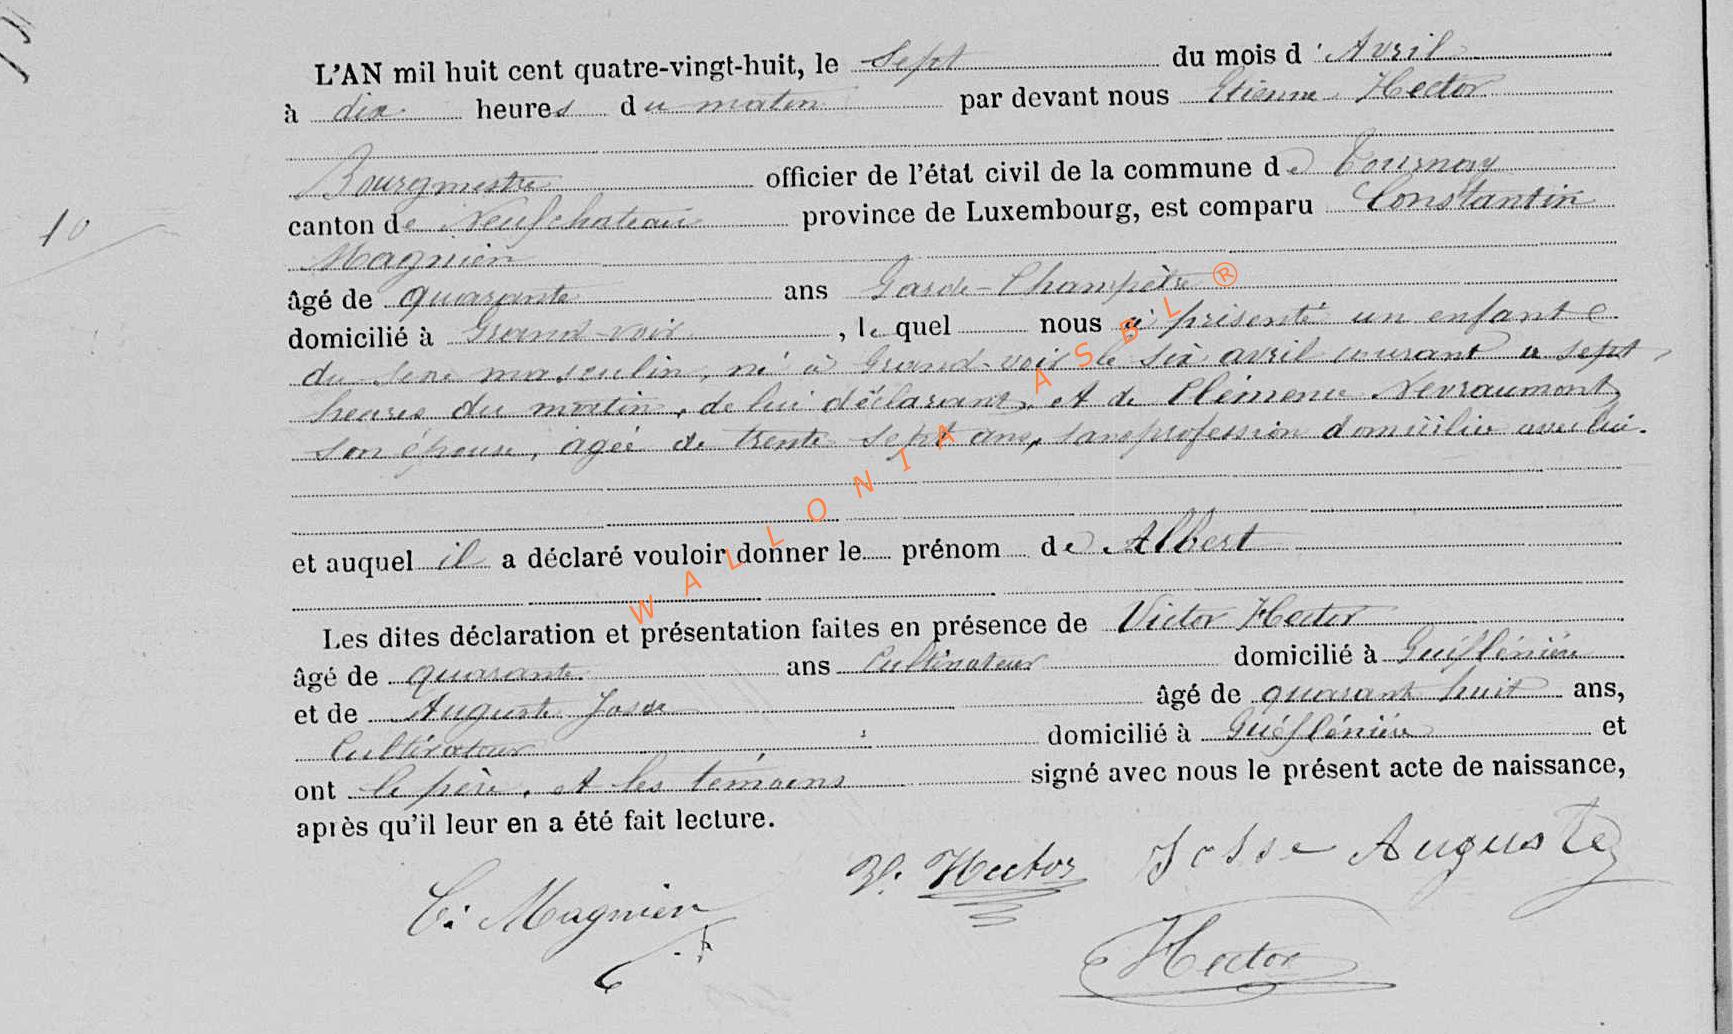 10
L'AN mil huit cent quatre-vingt-huit, le Sept du mois d'Avril
à dix heures du matin par devant nous Etienne Hector
Bourgmestre officier de l'état civil de la commune de Tournay
canton de Neufchateau province de Luxembourg, est comparu Constantin
Magnien
âgé de quarante ans Garde-Champêtre
domicilié à Grand-voir, lequel nous a présenté un enfant
du sexe masculin, né à Grand-voir le six avril courant a sept
heures du matin, de lui déclarant, et de Clémence Nevraumont
son épouse, agée de trente sept ans, sans profession domiciliée avec lui.
et auquel il a déclaré vouloir donner le prénom de Albert
Les dites déclaration et présentation faites en présence de Victor Hector
âgé de quarante ans Cultivateur domicilié à
et de Auguste Josse âgé de quarant huit ans,
Cultivateur domicilié à et
ont le père, et les témoins signé avec nous le présent acte de naissance,
après qu'il leur en a été fait lecture.
C. Magnien V. Hector Josse Auguste
Hector
WALLONIA ASBL ®